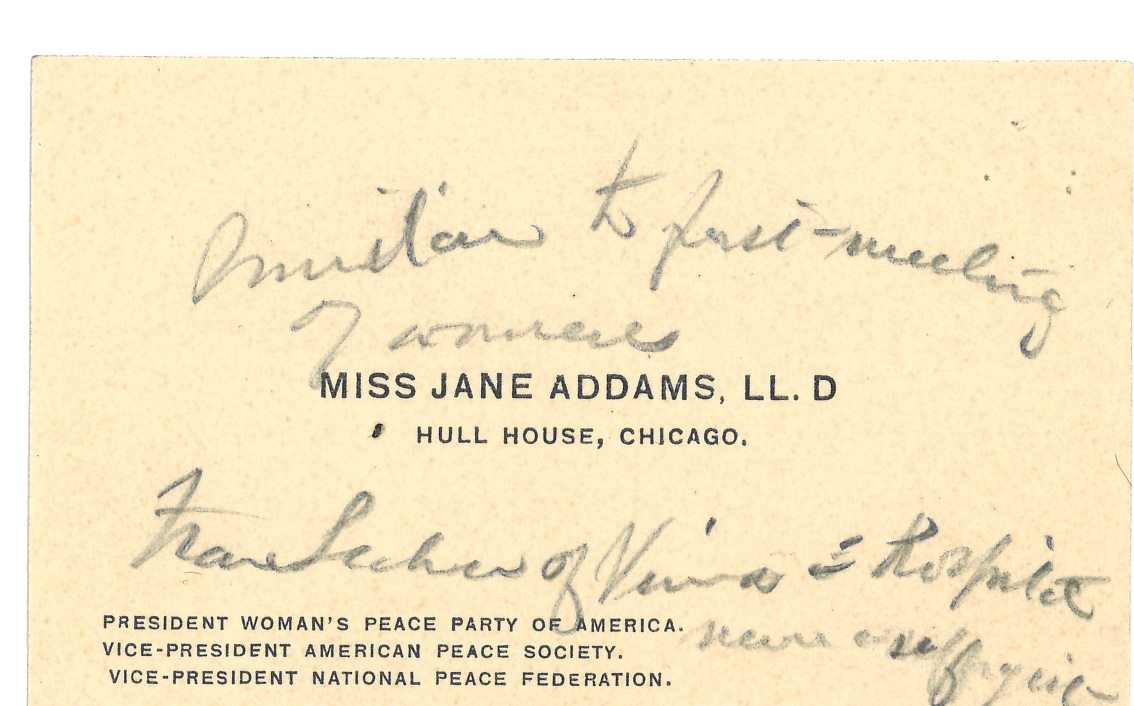 to first meeting
of women
MISS JANE ADDAMS, LL. D
HULL HOUSE, CHICAGO.
Frau of Vienna = Hospital
PRESIDENT WOMAN'S PEACE PARTY OF AMERICA.
VICE-PRESIDENT AMERICAN PEACE SOCIETY.
VICE-PRESIDENT NATIONAL PEACE FEDERATION.